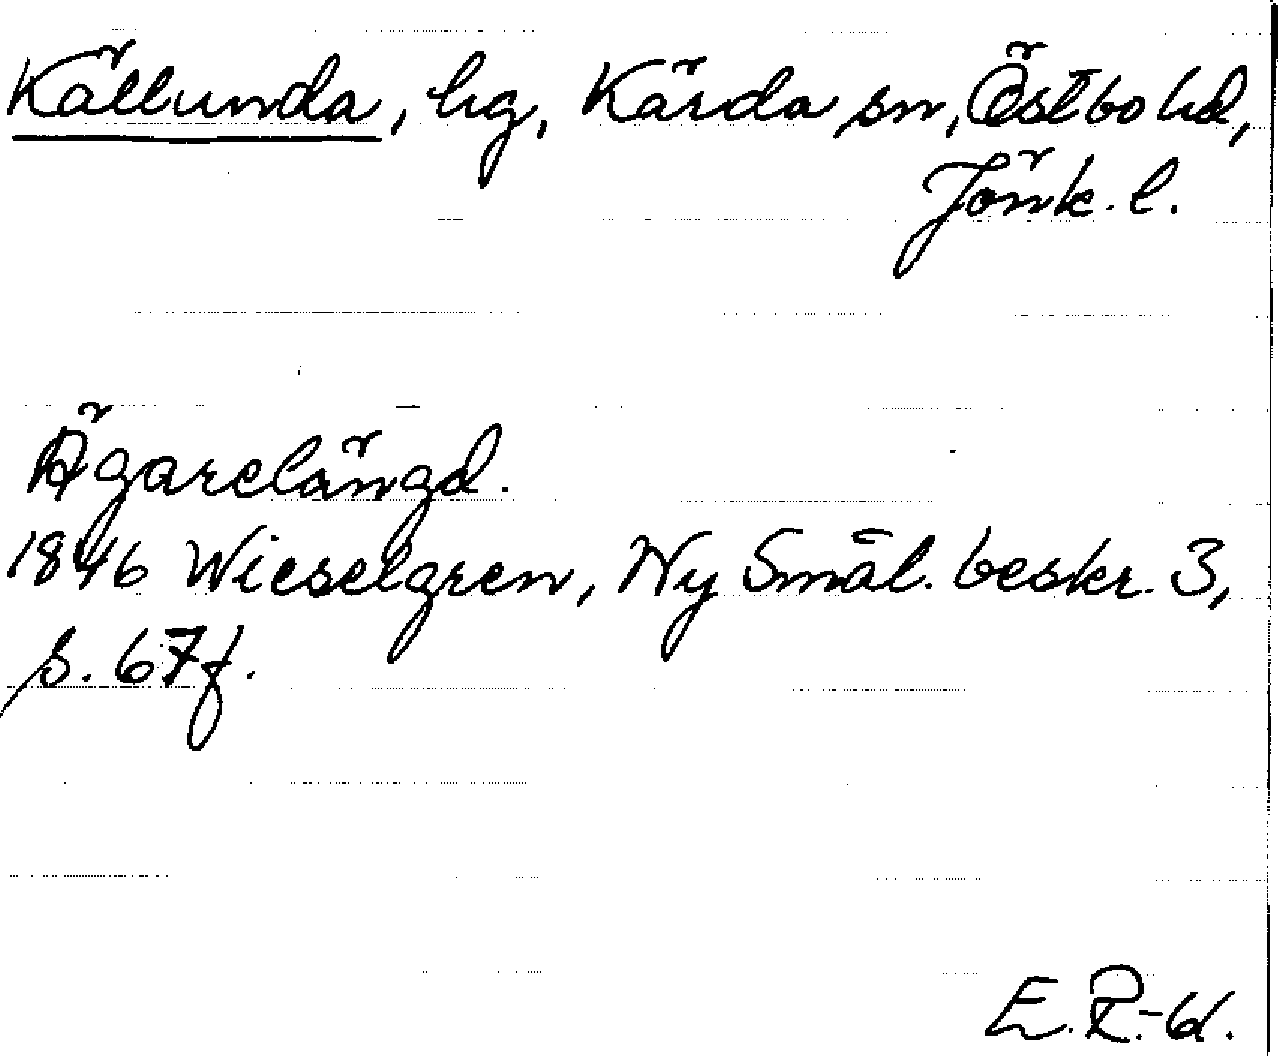 Källunda, hg, Kärda sn, Östbo hd,
Jönk. l.
Ägarelängd.
1846 Wieselgren, Ny Smål. beskr. 3,
s. 67 f.
E. R.-bl.